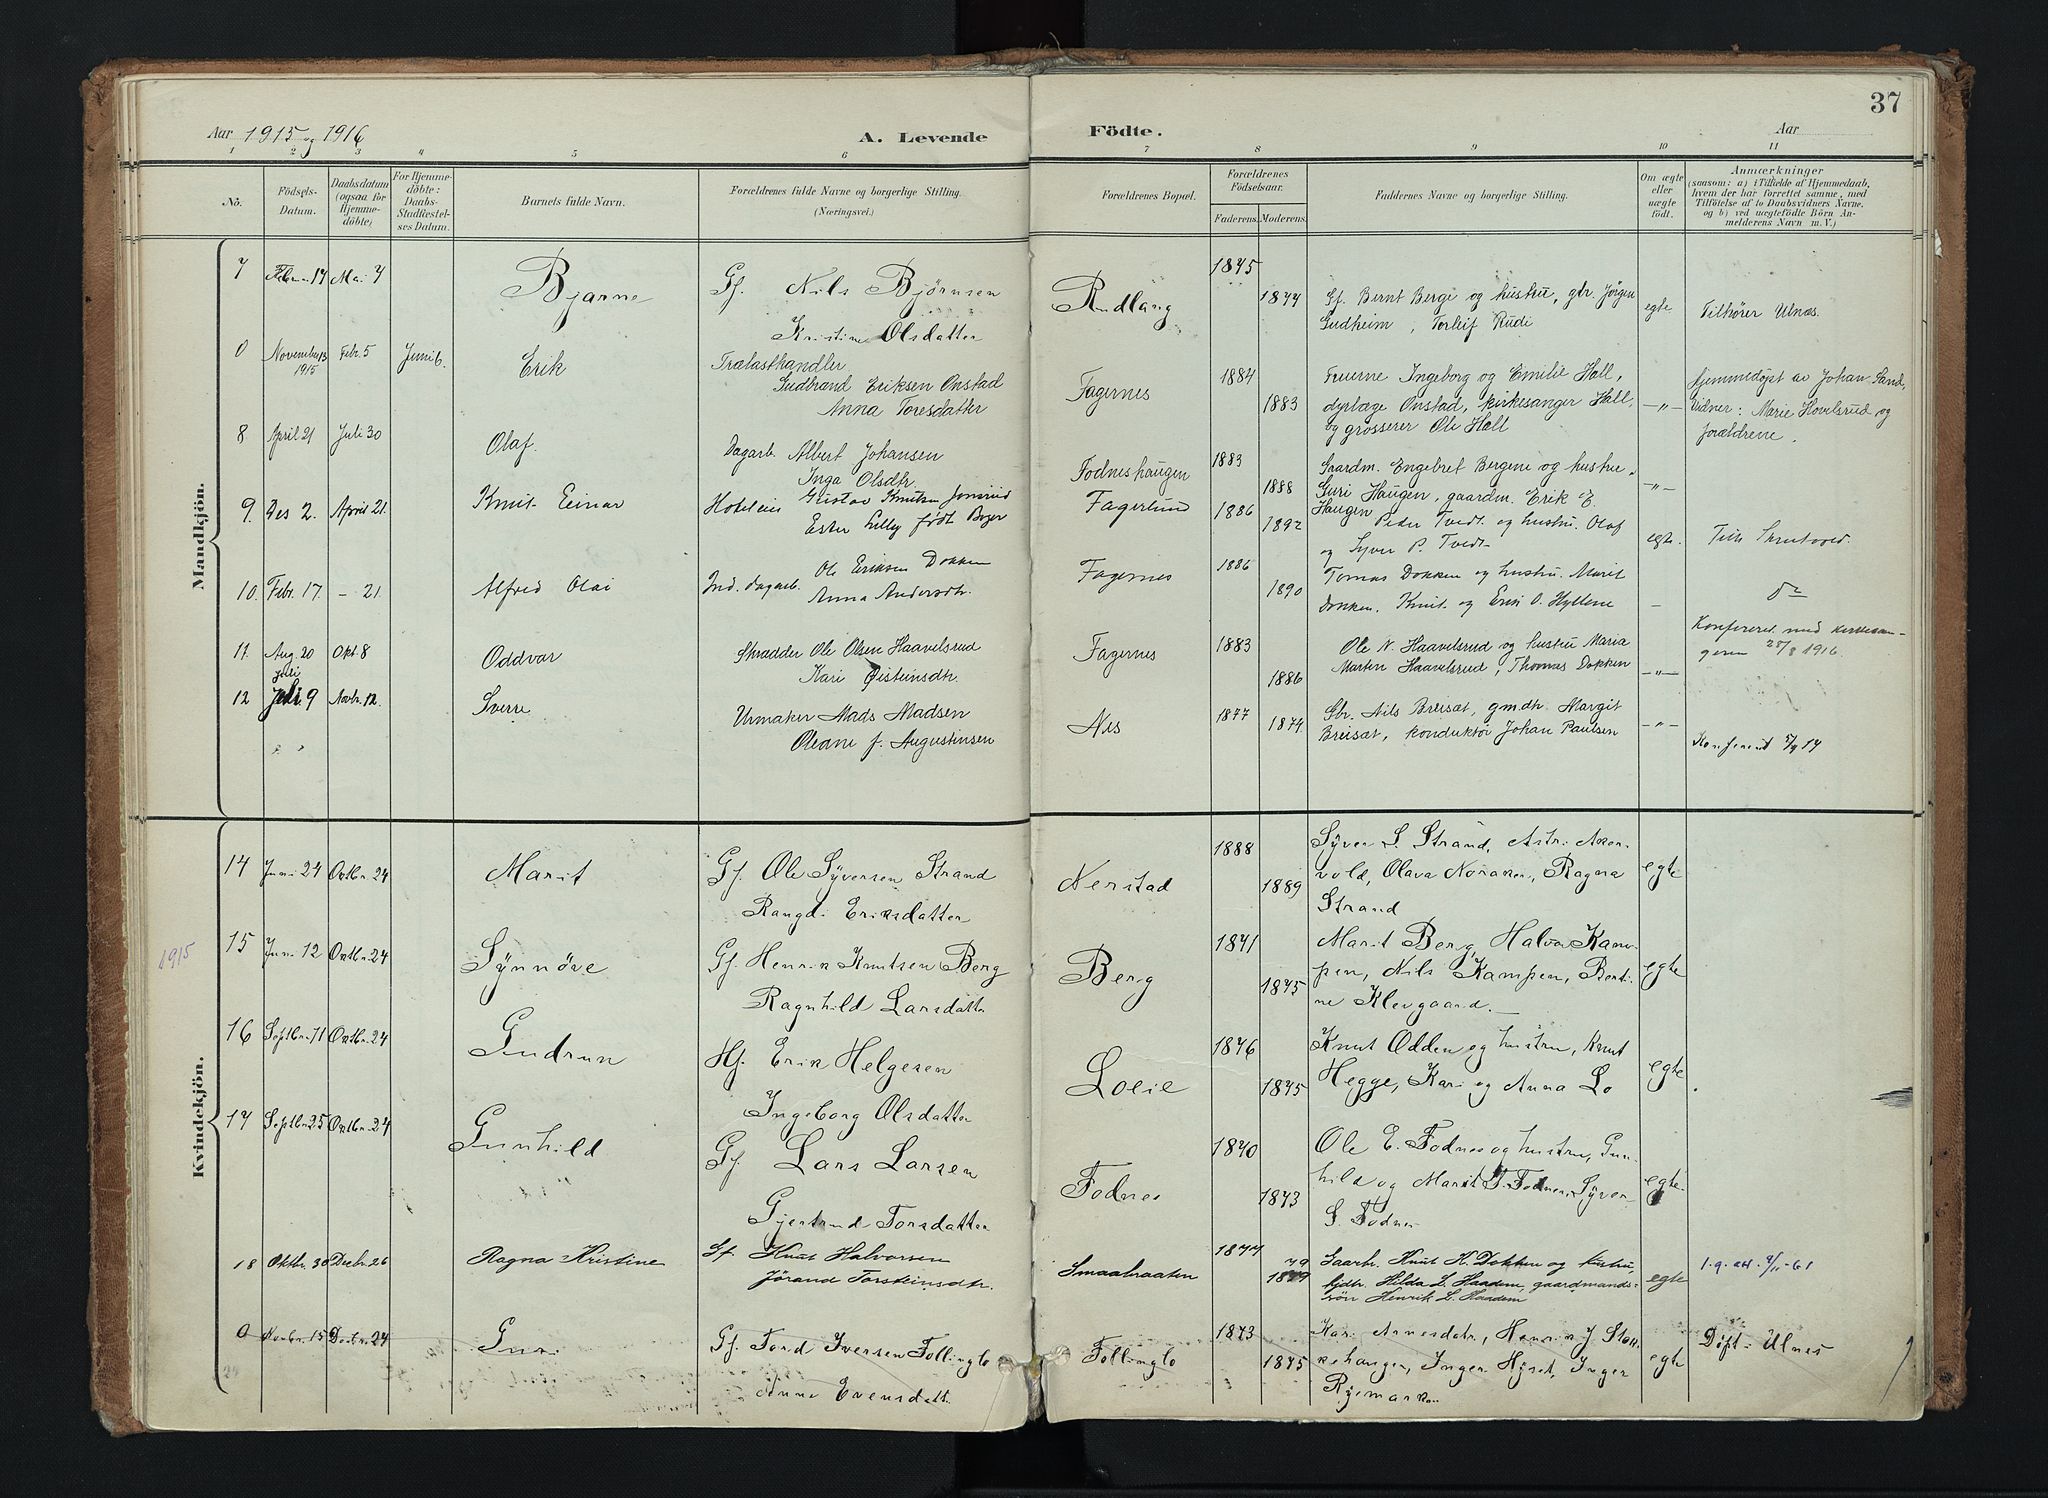 37
Aar 1915 og 1916
A. Levende
Födte.
Aar
1 2 3 4 5 6 7 8 9 10 11
No.
Födsels-Datum.
Daabsdatum (ogsaa for Hjemmedöbte)
For Hjemmedöbte: Daabs-Stadfæstelses Datum.
Barnets fulde Navn.
Forældrenes fulde Navne og borgerlige Stilling. (Næringsvei.)
Forældrenes Bopæl.
Forældrenes Födselsaar.
Faderens. Moderens.
Faddernes Navne og borgerlige Stilling.
Om ægte eller uægte födt.
Anmærkninger
(saasom: a) i Tilfælde af Hjemmedaab, hvem der har forrettet samme, med Tilföielse af to Daabsvidners Navne, og b) ved uægtefödte Börn Anmelderens Navn m. V.)
Mandkjön.
7 Febr. 17 Mai 7 Bjarne Gf. Nils Björnsen
Kristine Olsdatter
Rudlang 1875 1877
Gf. Bernt Berge og hustru, gbr. Jörgen
Gudheim, Torleif Rudi
egte Tilhörer Ulnæs.
0 November 13 1915 Febr. 5 Juni 6. Erik Trælasthandler
Gudbrand Eriksen Onstad
Anna Toresdatter
Fagernes 1884 1883
Fruerne Ingeborg og Emilie Hall,
dyrlæge Onstad, kirkesanger Hall,
og grosserer Ole Hall
-"- Hjemmedøpt av Johan Sand,
Vidner: Marie Hovelsrud og
forældrene.
8 April 21 Juli 30 Olaf. Dagarb. Albert Johansen
Inga Olsdtr.
Fodneshaugen 1883 1888
Gaardm. Engebret Bergene og hustru,
Guri Haugen, gaardm. Erik E.
Haugen
-"-
9. Des 2. April 21. Knut Einar Hoteleier Gustav Knutsen
Ester Lilly født Boger
Fagerlund 1886 1892
Peder Tvedt og hustru. Olaf
og Syver P. Tvedt
egte.
10. Febr. 17. - 21. Alfred Olai Ind. dagarb. Ole Eriksen Dokken
Anna Andersdtr.
Fagernes 1886 1890
Tomas Dokken og hustru. Marit
Dokken. Knut og Erik O. Hyllene
-
11. Aug. 20 Okt. 8 Oddvar Skrædder Ole Olsen Haavelsrud
Kari Øisteinsdtr.
Fagernes 1883 1886
Ole N. Haavelsrud og hustru Maria
Marten Haavelsrud, Thomas Dokken
-"- Konfereret med kirkesan-
geren 25/8 1916.
12 Juli 9 Novbr. 12. Sverre Urmaker Mads Madsen
Oleane f. Augustinsen
Nes 1877 1874
Gbr. Nils Breisæt, gmdtr. Margit
Breisæt, konduktør Johan Paulsen
-"-
Kvindekjön.
1915
14 Juni 24 Oktbr. 24 Marit Gf. Ole Syversen Strand
Rangdi Eriksdatter
Nerstad 1888 1889
Syver S. Strand, Astri Aker-
vold, Olava Noraker, Ragna
Strand
egte
15 Juni 12 Oktbr. 24 Synnöve Gf. Henrik Knutsen Berg
Ragnhild Larsdatter
Berg 1871 1875
Marit Berg, Halvor Kam-
pen, Nils Kampen, Berti-
ne Klevgaard.
egte
16 Septbr. 11 Oktbr. 24 Gudrun Hf. Erik Helgesen
Ingeborg Olsdatter
Loeie 1876 1875
Knut Odden og hustru, Knut
Hegge, Kari og Anna Lo
egte
17 Septbr. 25 Oktbr. 24 Gunhild Gf. Lars Larsen
Gjertrud Torsdatter
Fodnes 1870 1873
Ole E. Fodnes og hustru, Gun-
hild og Marit T. Fodnes, Syver
S. Fodnes
egte
18 Oktbr. 30 Decbr. 26 Ragna Kristine Gf. Knut Halvorsen
Jörand Torsteinsdtr.
Smaabraaten 1877 79 1879
Gaarbr. Knut K. Dokken og hustru,
Hilda L. Haadem, gaardmands-
sön Henrik L. Haadem
egte
0 Novbr. 15 Decbr. 24 Guri Gf. Tord Iversen Follinglo
Anne Evensdatt.
Follinglo 1873 1875
Kari Arnesdatr., Henrik J. Stor-
kehaugen, Inger Hyset, Inger
Ryemarken
egte Döpt i Ulnes